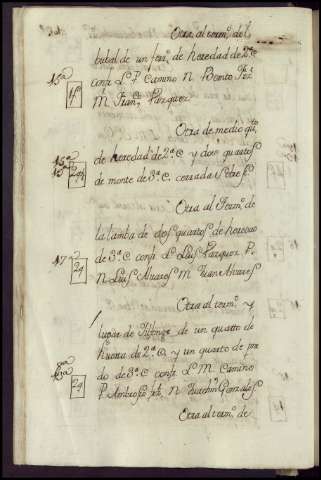 Otra al term.º del
butal de un ferr.º de heredad de 2.ª C
15.ª conf. L. P. Camino N. Benito
1f.º M. Fran.co Vazquez
Otra de medio
16.ª de heredad de 2.ª C y dos quartos
de monte de 3.ª C, cerrada sobre si
Otra al Term.º de
la lamba de dos quartos de heredad
17.ª de 3.ª C conf. L. Luis Vazquez P.
2q N. Luis Alvares M. Juan Alvares
Otra al term.º y
lugar de de un quarto de
huerta de 2.ª C y un quarto de pra
18.ª do de 3.ª C conf. L. M. Camino
2q P. Ambrosio N. Joachin Gonzales
Otra al term.º de